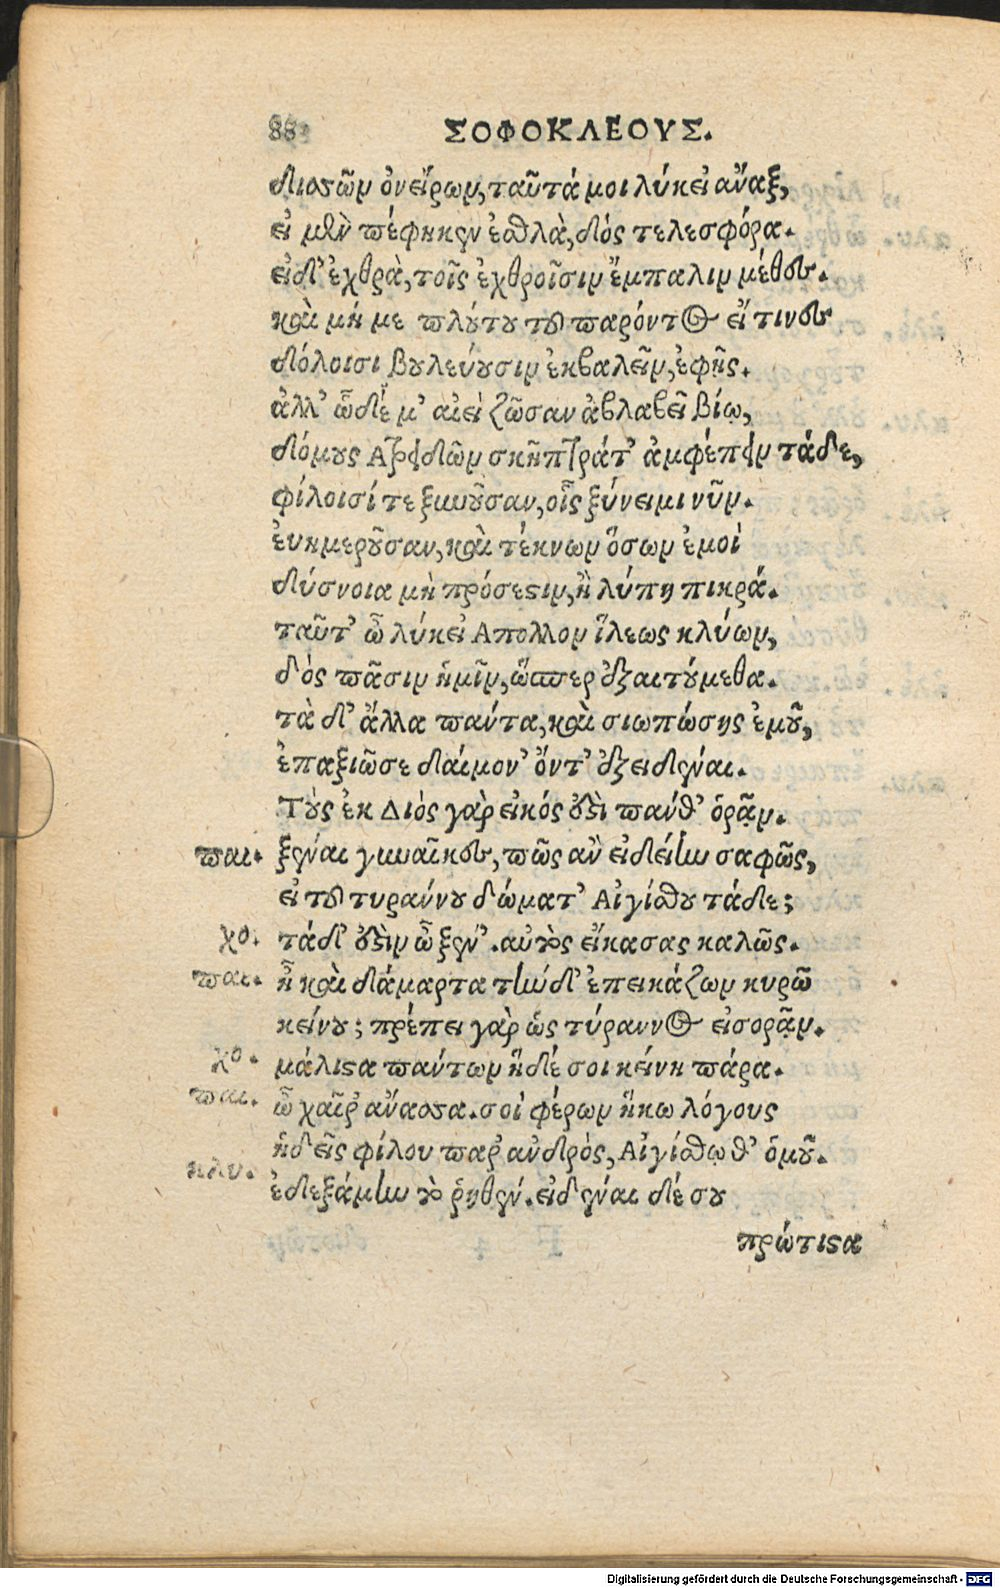 88 ΣΟΦΟΚΛΕΟΥΣ.
δισσῶν ὀνείρων, ταῦτά μοι λύκει ἄναξ,
εἰ μὲν πέφηνεν ἐσθλὰ, δός τελεσφόρα.
εἰ δ' ἐχθρὰ, τοῖς ἐχθροῖσιν ἔμπαλιν μέθες.
καὶ μή με πλούτου τοῦ παρόντος εἴ τινες
δόλοισι βουλεύουσιν ἐκβαλεῖν, ἐφῇς.
ἀλλ' ὧδέ μ' αἰεὶ ζῶσαν ἀβλαβεῖ βίῳ,
δόμους Ἀτρειδῶν σκῆπτρά τ' ἀμφέπειν τάδε,
φίλοισί τε ξυνοῦσαν, οἷς ξύνειμι νῦν.
ἐυημεροῦσαν, καὶ τέκνων ὅσων ἐμοὶ
δύσνοια μὴ πρόσεστιν, ἢ λύπη πικρά.
ταῦτ' ὦ λύκει Ἀπολλον ἵλεως κλύων,
δὸς πᾶσιν ἡμῖν, ὥσπερ ἐξαιτούμεθα.
τὰ δ' ἄλλα πάντα, καὶ σιωπώσης ἐμοῦ,
ἐπαξιῶ σε δαίμον' ὄντ' ἐξειδέναι.
Τοὺς ἐκ Διὸς γὰρ εἰκός ἐστι πάνθ' ὁρᾷν.
παι. ξέναι γυναῖκες, πῶς ἂν εἰδείην σαφῶς,
εἰ τοῦ τυράννου δώματ' Αἰγίσθου τάδε;
χο. τάδ' ἐστὶν ὦ ξέν'. αὐτὸς εἴκασας καλῶς.
παι. ἦ καὶ δάμαρτα τήνδ' ἐπεικάζων κυρῶ
κείνου; πρέπει γὰρ ὡς τύραννος εἰσορᾷν.
χο. μάλιστα πάντων ἥδέ σοι κείνη πάρα.
παι. ὦ χαῖρ' ἄνασσα. σοὶ φέρων ἥκω λόγους
ἡδεῖς φίλου παρ' ἀνδρὸς, Αἰγίσθῳ θ' ὁμοῦ.
κλυ. ἐδεξάμην τὸ ῥηθέν. εἰδέναι δέ σου
πρώτιστα
Digitalisierung gefördert durch die Deutsche Forschungsgemeinschaft - DFG